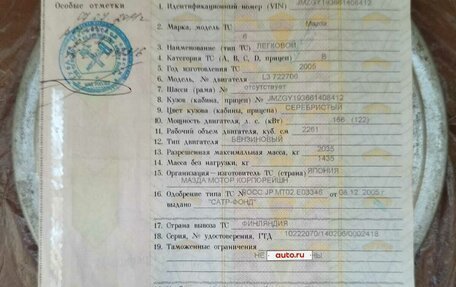 Особые отметки
1. Идентификационный номер (VIN) JMZGY193661408412
2. Марка, модель ТС Mazda
6
3. Наименование (тип ТС) ЛЕГКОВОЙ
4. Категория ТС (A, B, C, D, прицеп) B
5. Год изготовления ТС 2005
6. Модель, № двигателя L3 722706
7. Шасси (рама) № отсутствует
8. Кузов (кабина, прицеп) № JMZGY193661408412
9. Цвет кузова (кабины, прицепа) СЕРЕБРИСТЫЙ
10. Мощность двигателя, л. с. (кВт) 166 (122)
11. Рабочий объем двигателя, куб. см 2261
12. Тип двигателя БЕНЗИНОВЫЙ
13. Разрешенная максимальная масса, кг 2035
14. Масса без нагрузки, кг 1435
15. Организация – изготовитель ТС (страна) ЯПОНИЯ
МАЗДА МОТОР КОРПОРЕЙШН
16. Одобрение типа ТС № РОСС JP.MT02.E03346 от 08.12.2005 г.
выдано "САТР-ФОНД"
17. Страна вывоза ТС ФИНЛЯНДИЯ
18. Серия, № удостоверения, ГТД 10222070/140206/0002418
19. Таможенные ограничения
НЕ auto.ru НЫ